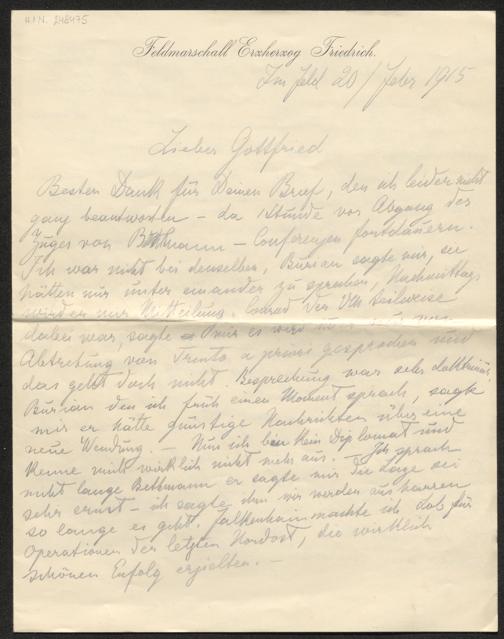 H.I.N. 248475
Feldmarschall Erzherzog Friedrich.
Im Feld 20/ 1915
Lieber Gottfried
Besten Dank für Deinen Brief, den ich leider nicht
ganz beantworten – da 1 Stunde vor Abgang des
Zuges von Bethmann – Conferenzen fortdauern.
Ich war nicht bei denselben, Burian sagte mir, sie
hätten nur unter einander zu sprechen, Nachmittags
würden nur Mitteilung. Conrad der teilweise
dabei war, sagte mir es wird nur von
Abtretung von Trento a gesprochen und
das geht doch nicht. Besprechung war sehr
Burian den ich früh einen Moment sprach, sagte
mir er hätte günstige Nachrichten über eine
neue Wendung. – Nun ich bin kein Diplomat und
kenne mich wirklich nicht mehr aus. – Ich sprach
nicht lange Bethmann er sagte mir die Lage sei
sehr ernst – ich sagte ihm wir werden ausharren
so lange es geht. Falkenhain machte ich Lob für
Operationen der letzten Nordost, die wirklich
schönen Erfolg erzielten. –